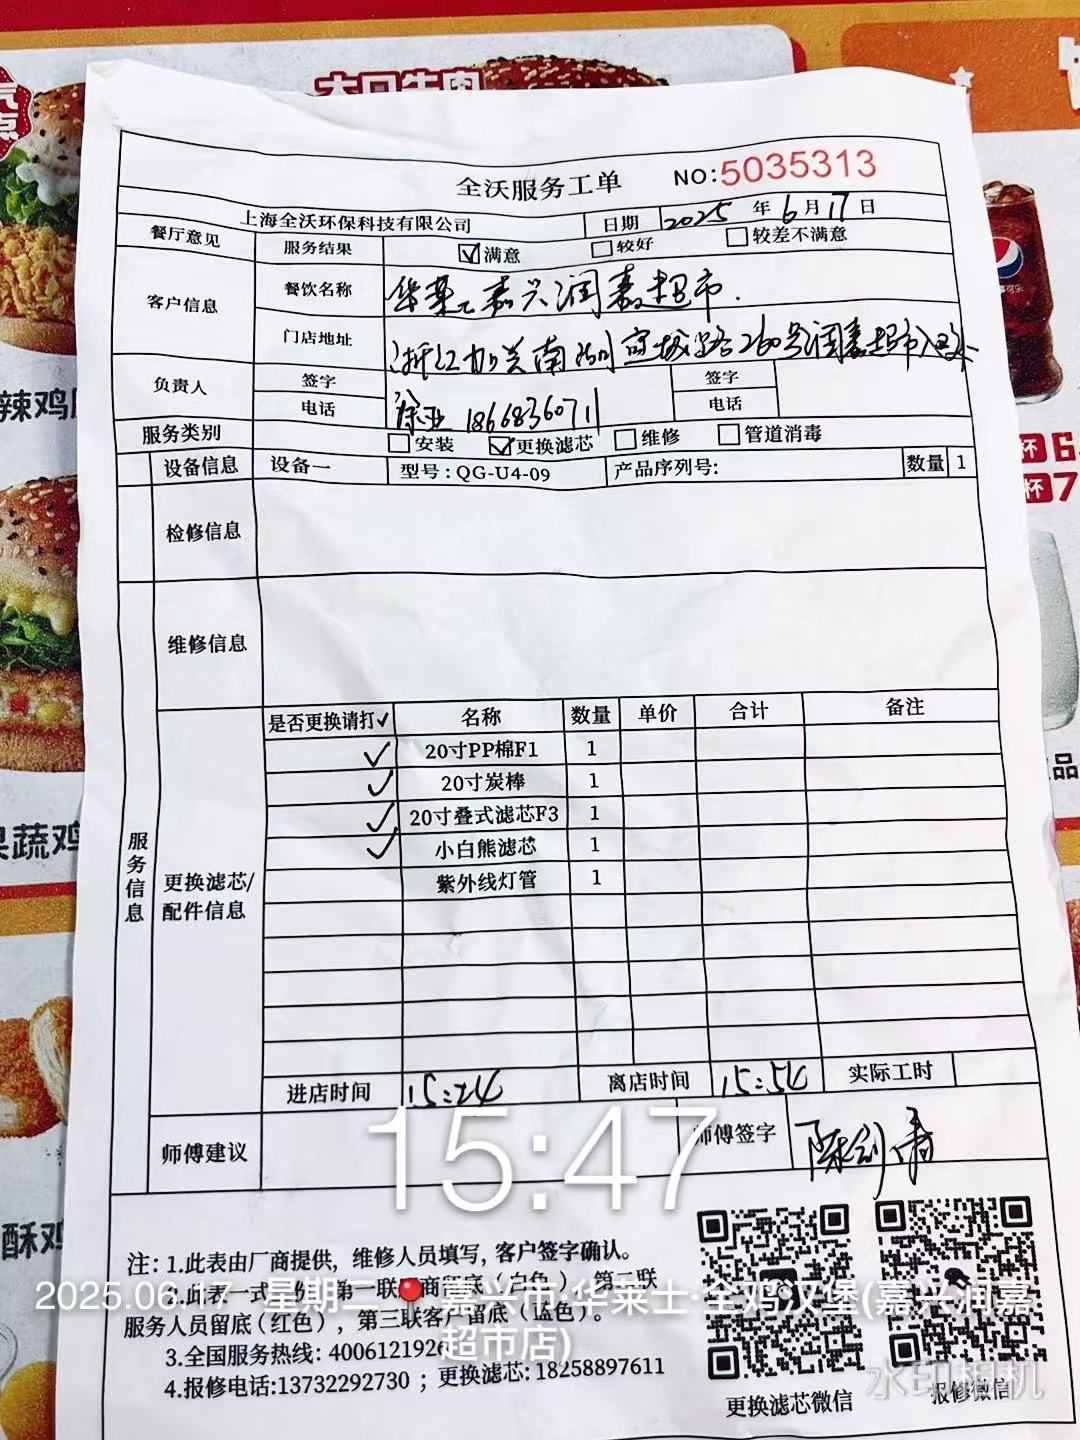 大口牛肉
全沃服务工单 NO:5035313
上海全沃环保科技有限公司 日期 2025 年 6 月 17 日
餐厅意见 服务结果 ☑满意 □较好 □较差不满意
客户信息 餐饮名称 华莱士嘉兴润嘉超市.
门店地址 浙江加兴南湖 路260号润嘉超市
负责人 签字 签字
电话 徐亚 18668360711 电话
服务类别 □安装 ☑更换滤芯 □维修 □管道消毒
设备信息 设备一 型号:QG-U4-09 产品序列号: 数量 1
检修信息
维修信息
服务信息
更换滤芯/
配件信息
是否更换请打✓ 名称 数量 单价 合计 备注
✓ 20寸PP棉F1 1
✓ 20寸炭棒 1
✓ 20寸叠式滤芯F3 1
✓ 小白熊滤芯 1
紫外线灯管 1
进店时间 15:24 离店时间 15:54 实际工时
师傅建议 师傅签字
15:47
注: 1.此表由厂商提供, 维修人员填写, 客户签字确认。
2.此表一式 第一联 商留底(白色), 第二联
服务人员留底(红色), 第三联客户留底(蓝色)。
3.全国服务热线: 4006121926
4.报修电话:13732292730 ; 更换滤芯: 18258897611
更换滤芯微信 报修微信
2025.06.17 星期二 嘉兴市·华莱士·全鸡汉堡(嘉兴润嘉
超市店)
水印相机